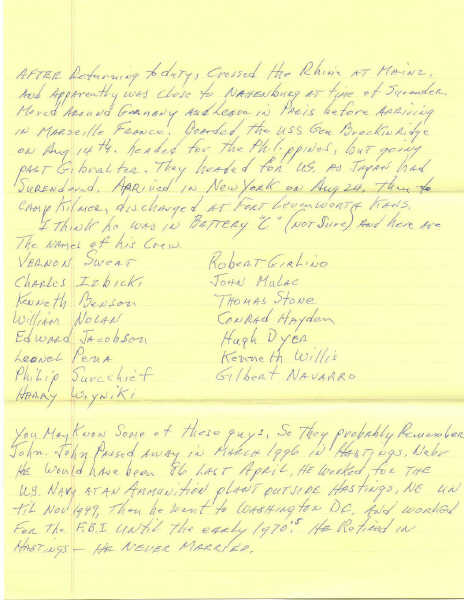 AFTER Returning to duty, Crossed the Rhine AT MAINZ.
And Apparently was close to NAHENBURG at time of Surender.
Moved Around Germany And Leave in Paris before ARRiving
in MARSEille FRANCE. Boarded the USS Gen Breckinridge
on Aug 14th. headed for the Philippines, but going
PAST Gibralter. They headed for US. AS JAPAN had
Surendered. ARRived in New York on Aug 24, Then to
CAMP Kilmer, discharged at FORT Levenworth KANS.
I think he was in BATTERY "C" (not Sure) And here are
The names of his Crew.
VERNON SWEAT Robert GiRLiNO
CHARLES IZbicki JOHN MOLAC
KENNETH BENSON THOMAS STONE
William NOLAN CONRAD HAYDON
EDWARD JACObSON Hugh DYER
Leonel PENA KENNETH Willis
Philip SURECHIEF GilBERT NAVARRO
HARRY WiyNiKi
YOU MAY KNOW Some of These guys, So They probably Remember
John. John PASSED AWAY in MARCH 1996 in HASTINGS, Nebr
HE Would have been 86 LAST April. HE WORKED for THE
U.S. NAVY AT AN AMMUNITION plANT OUTSIDE HASTINGS, NE UN
til Nov 1949, Then he went to WASHINGTON DC. And WORKED
FOR THE F.B.I UNTIL the early 1970's HE RETIRED in
HASTINGS - HE NEVER MARRIED.